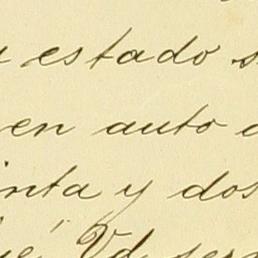 estado
en auto
inta y dos
Vd. ser